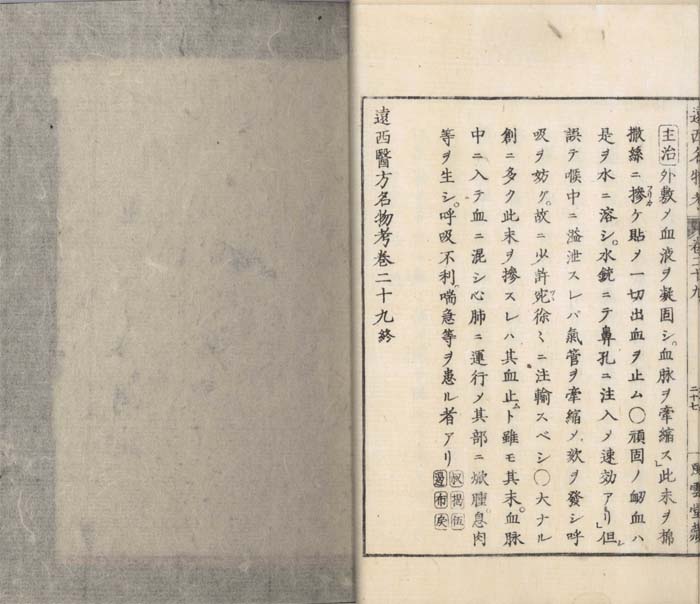 遠西名物考 卷二十九 二十七 風雲堂藏
主治 外敷メ血液ヲ凝固シ血脉ヲ牽縮ス」此末ヲ綿
撒絲ニ摻ケ貼メ一切出血ヲ止ム〇頑固ノ衂血ハ
是ヲ水ニ溶シ水銃ニテ鼻孔ニ注入メ速効アリ」但シ
誤テ喉中ニ溢泄スレバ氣管ヲ牽縮メ欬ヲ發シ呼
吸ヲ妨グ故ニ少許宛徐ミニ注輸スベシ〇大ナル
創ニ多ク此末ヲ摻スレハ其血止ムト雖モ其末血脉
中ニ入テ血ニ混シ心肺ニ運行メ其部ニ焮腫息肉
等ヲ生シ呼吸不利喘急等ヲ患ル者アリ
遠西醫方名物考卷二十九終